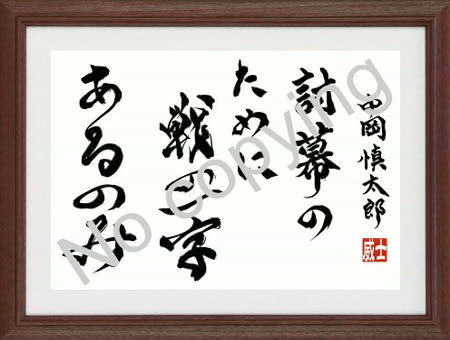 中岡慎太郎
士威
討幕の
ために
戦の字
あるのみ
No copying